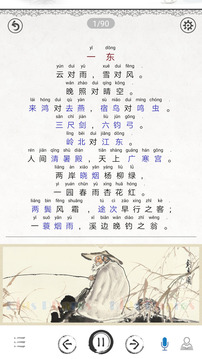 1/90
yī dōng
一 东
yún duì yǔ xuě duì fēng
云对雨，雪对风。
wǎn zhào duì qíng kōng
晚照对晴空。
lái hóng duì qù yàn sù niǎo duì míng chóng
来鸿对去燕，宿鸟对鸣虫。
sān chǐ jiàn liù jūn gōng
三尺剑，六钧弓。
lǐng běi duì jiāng dōng
岭北对江东。
rén jiān qīng shǔ diàn tiān shàng guǎng hán gōng
人间清暑殿，天上广寒宫。
liǎng àn xiǎo yān yáng liǔ lǜ
两岸晓烟杨柳绿，
yī yuán chūn yǔ xìng huā hóng
一园春雨杏花红。
liǎng bìn fēng shuāng tú cì zǎo xíng zhī kè
两鬓风霜，途次早行之客；
yī suō yān yǔ xī biān wǎn diào zhī wēng
一蓑烟雨，溪边晚钓之翁。